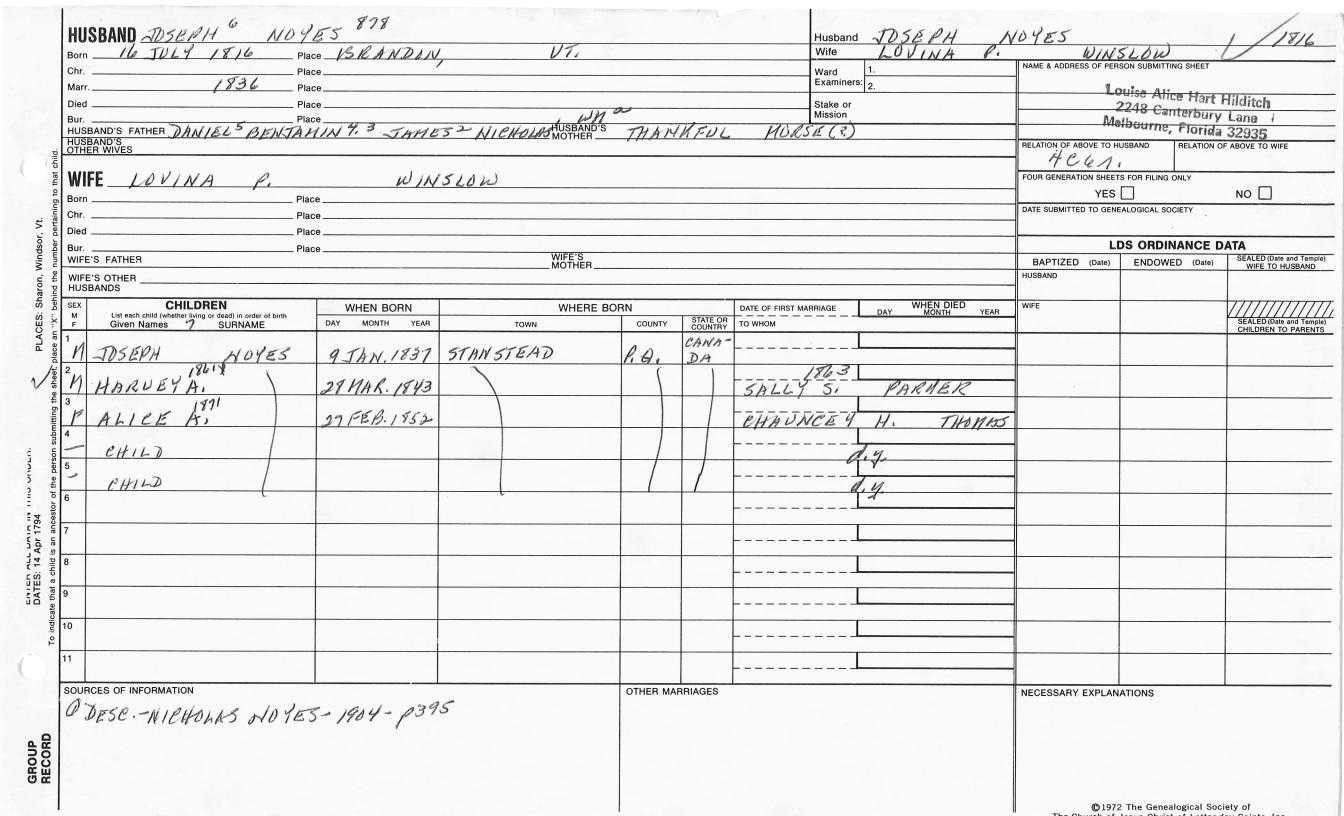 HUSBAND JOSEPH 6 NOYES 878
Born 16 JULY 1816 Place BRANDON, VT.
Chr. Place
Marr. 1836 Place
Died Place
Bur. Place
HUSBAND'S FATHER DANIEL 5 BENJAMIN 4, 3 JAMES 2 NICHOLAS HUSBAND'S MOTHER THANKFUL MORSE(?)
HUSBAND'S OTHER WIVES
WIFE LOVINA P. WINSLOW
Born Place
Chr. Place
Died Place
Bur. Place
WIFE'S FATHER WIFE'S MOTHER
WIFE'S OTHER HUSBANDS
Husband JOSEPH NOYES
Wife LOVINA P. WINSLOW 1/1816
Ward Examiners: 1.
2.
Stake or Mission
NAME & ADDRESS OF PERSON SUBMITTING SHEET
Louise Alice Hart Hilditch
2248 Canterbury Lane
Melbourne, Florida 32935
RELATION OF ABOVE TO HUSBAND RELATION OF ABOVE TO WIFE
FOUR GENERATION SHEETS FOR FILING ONLY
YES NO
DATE SUBMITTED TO GENEALOGICAL SOCIETY
LDS ORDINANCE DATA
BAPTIZED (Date) ENDOWED (Date) SEALED (Date and Temple) WIFE TO HUSBAND
HUSBAND
WIFE
SEALED (Date and Temple) CHILDREN TO PARENTS
SEX M F
CHILDREN
List each child (whether living or dead) in order of birth
Given Names 7 SURNAME
WHEN BORN
DAY MONTH YEAR
WHERE BORN
TOWN COUNTY STATE OR COUNTRY
DATE OF FIRST MARRIAGE
TO WHOM
WHEN DIED
DAY MONTH YEAR
1 M JOSEPH NOYES 9 JAN. 1837 STANSTEAD P.Q. CANADA
2 M HARVEY A. 1861 28 MAR. 1843 1863 SALLY S. PARKER
3 F ALICE A. 1871 27 FEB. 1852 CHAUNCEY H. THOMAS
4 – CHILD d.y.
5 – CHILD d.y.
6
7
8
9
10
11
SOURCES OF INFORMATION
DESC.-NICHOLAS NOYES-1904-p395
OTHER MARRIAGES
NECESSARY EXPLANATIONS
©1972 The Genealogical Society of
PLACES: Sharon, Windsor, Vt.
DATES: 14 Apr 1794
To indicate that a child is an ancestor of the person submitting the sheet, place an "X" behind the number pertaining to that child.
GROUP RECORD